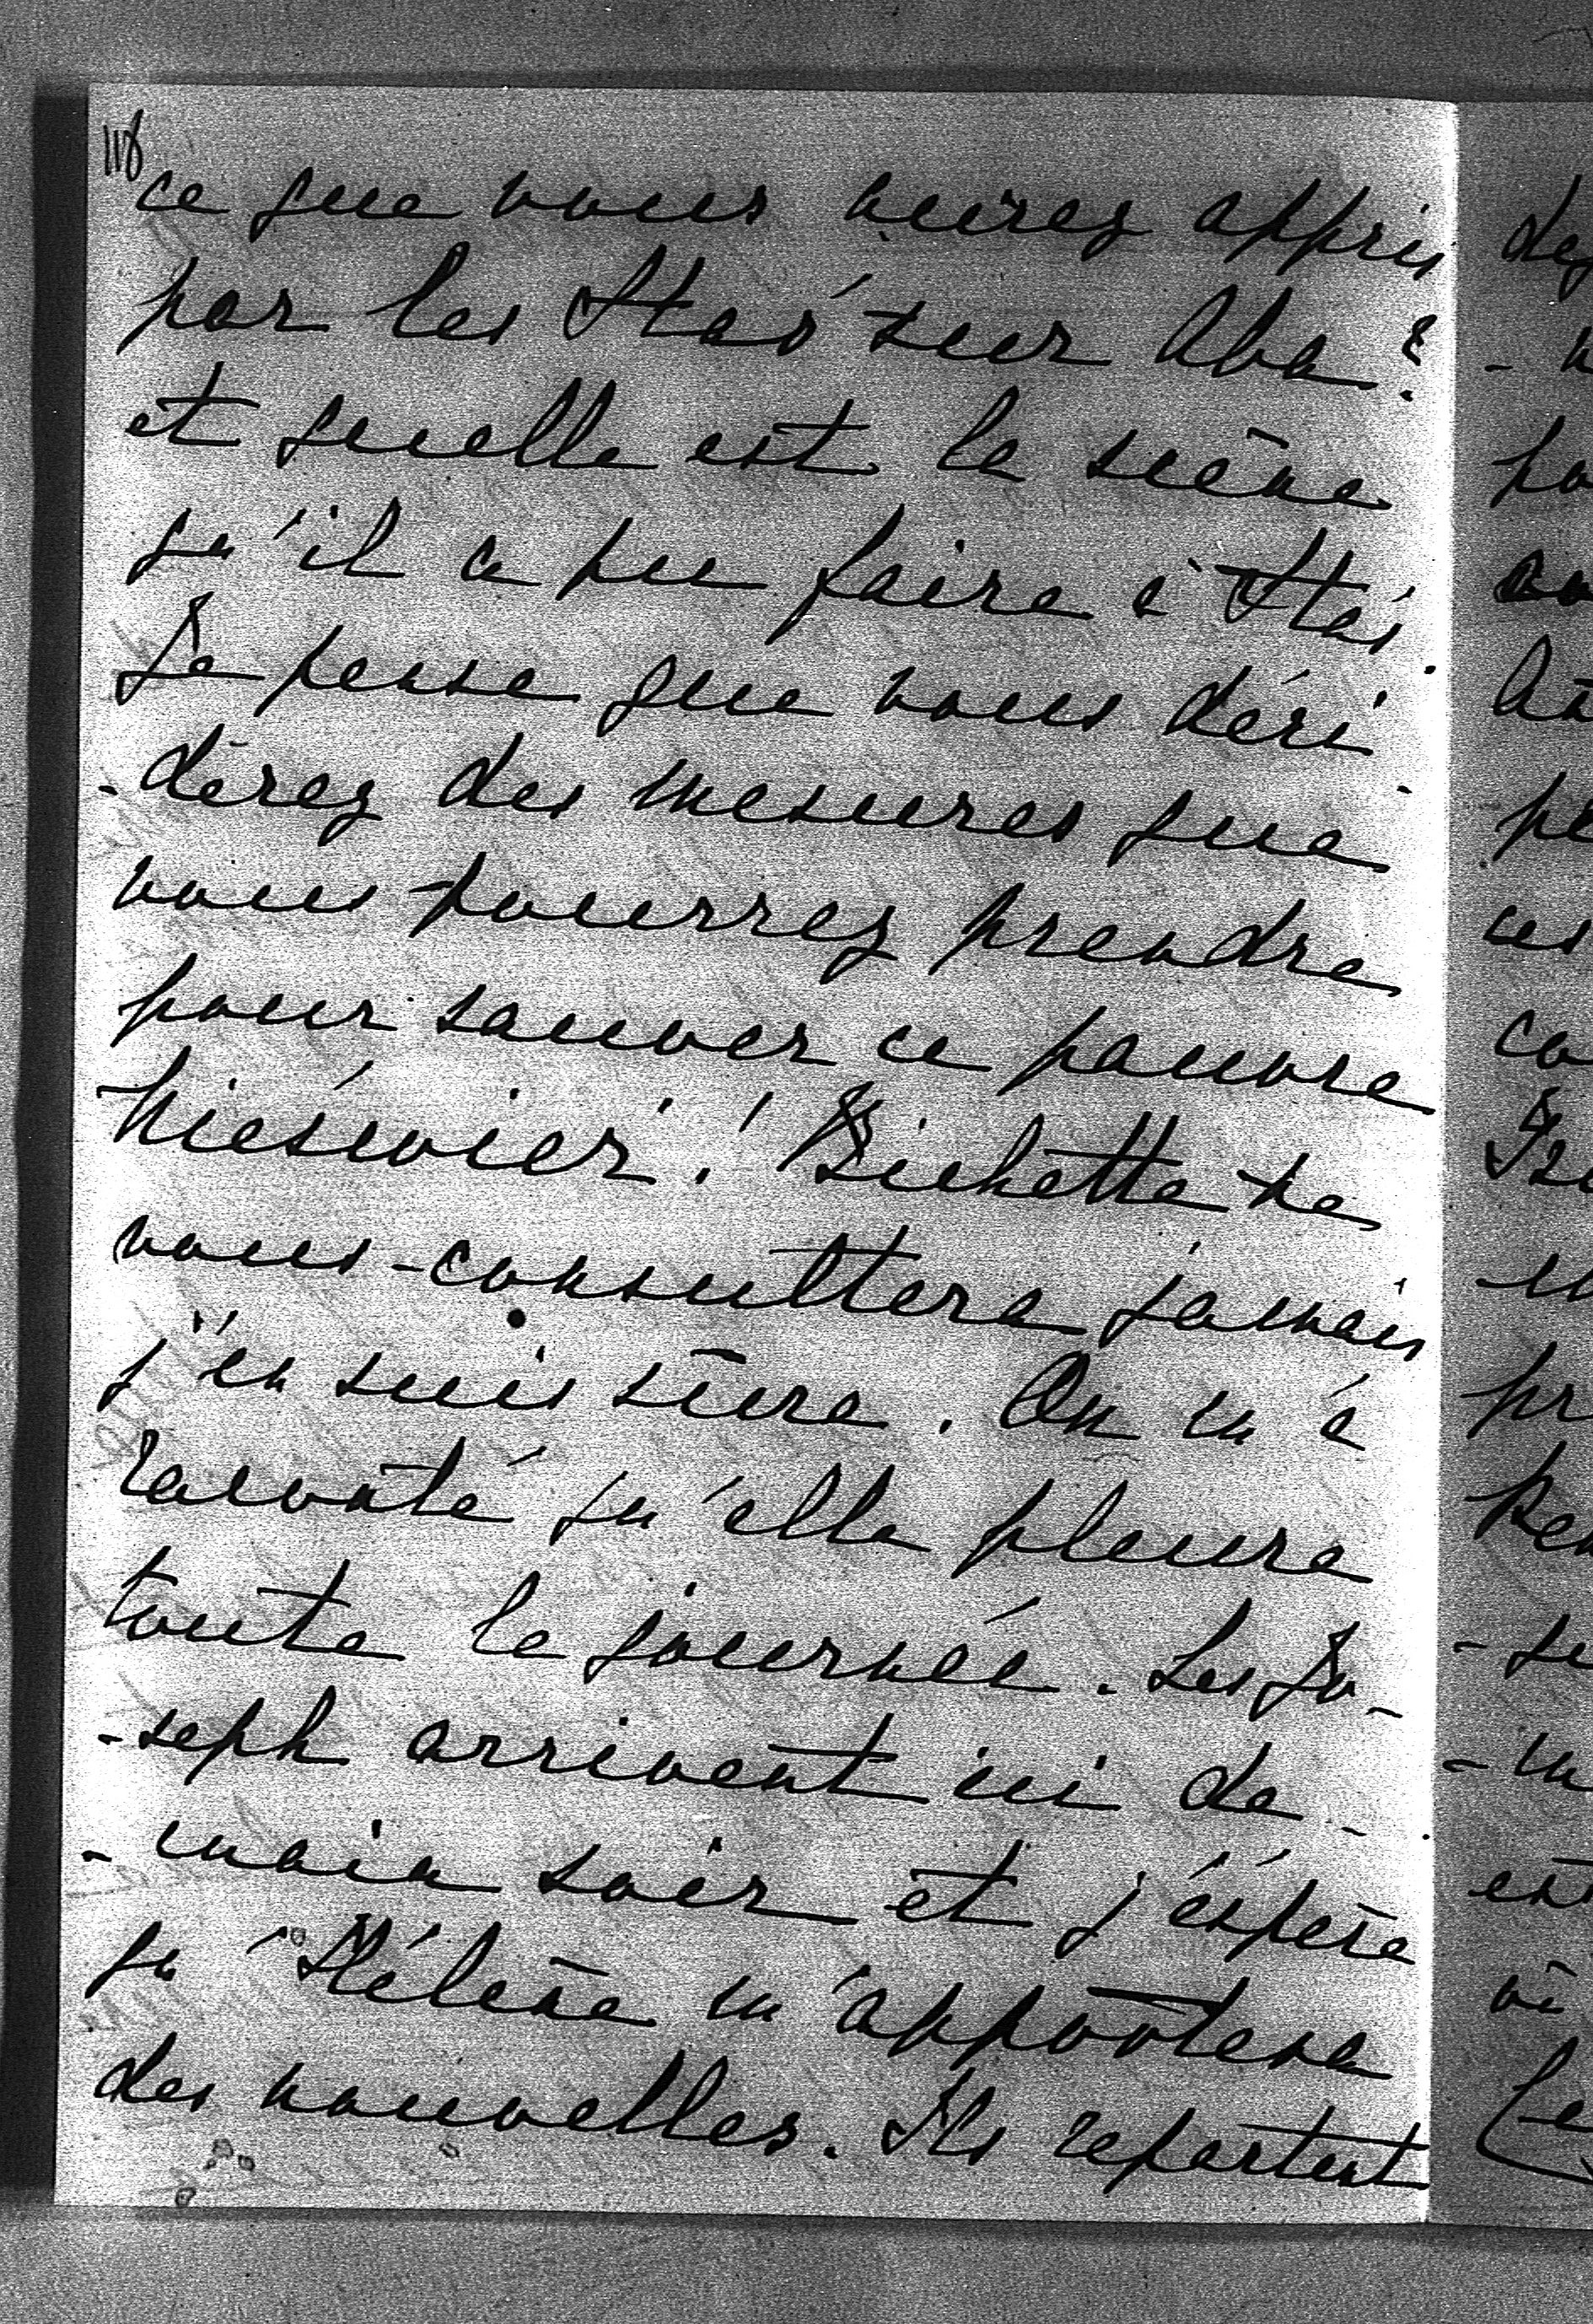 118
ce que vous aurez appris
par les Stas' sur Aba?
et quelle est la scène
qu'il a pu faire à Stas'.
Je pense que vous déci-
-derez des mesures que
vous pourrez prendre
pour sauver ce pauvre
Nieświez! Bichette ne
vous consultera jamais
j'en suis sûre. On m'a
raconté qu'elle pleure
toute la journée. Les Jo-
-seph arrivent ici de-
-main soir et j'espère
qu'Hélène m'apportera
des nouvelles. Ils repartent